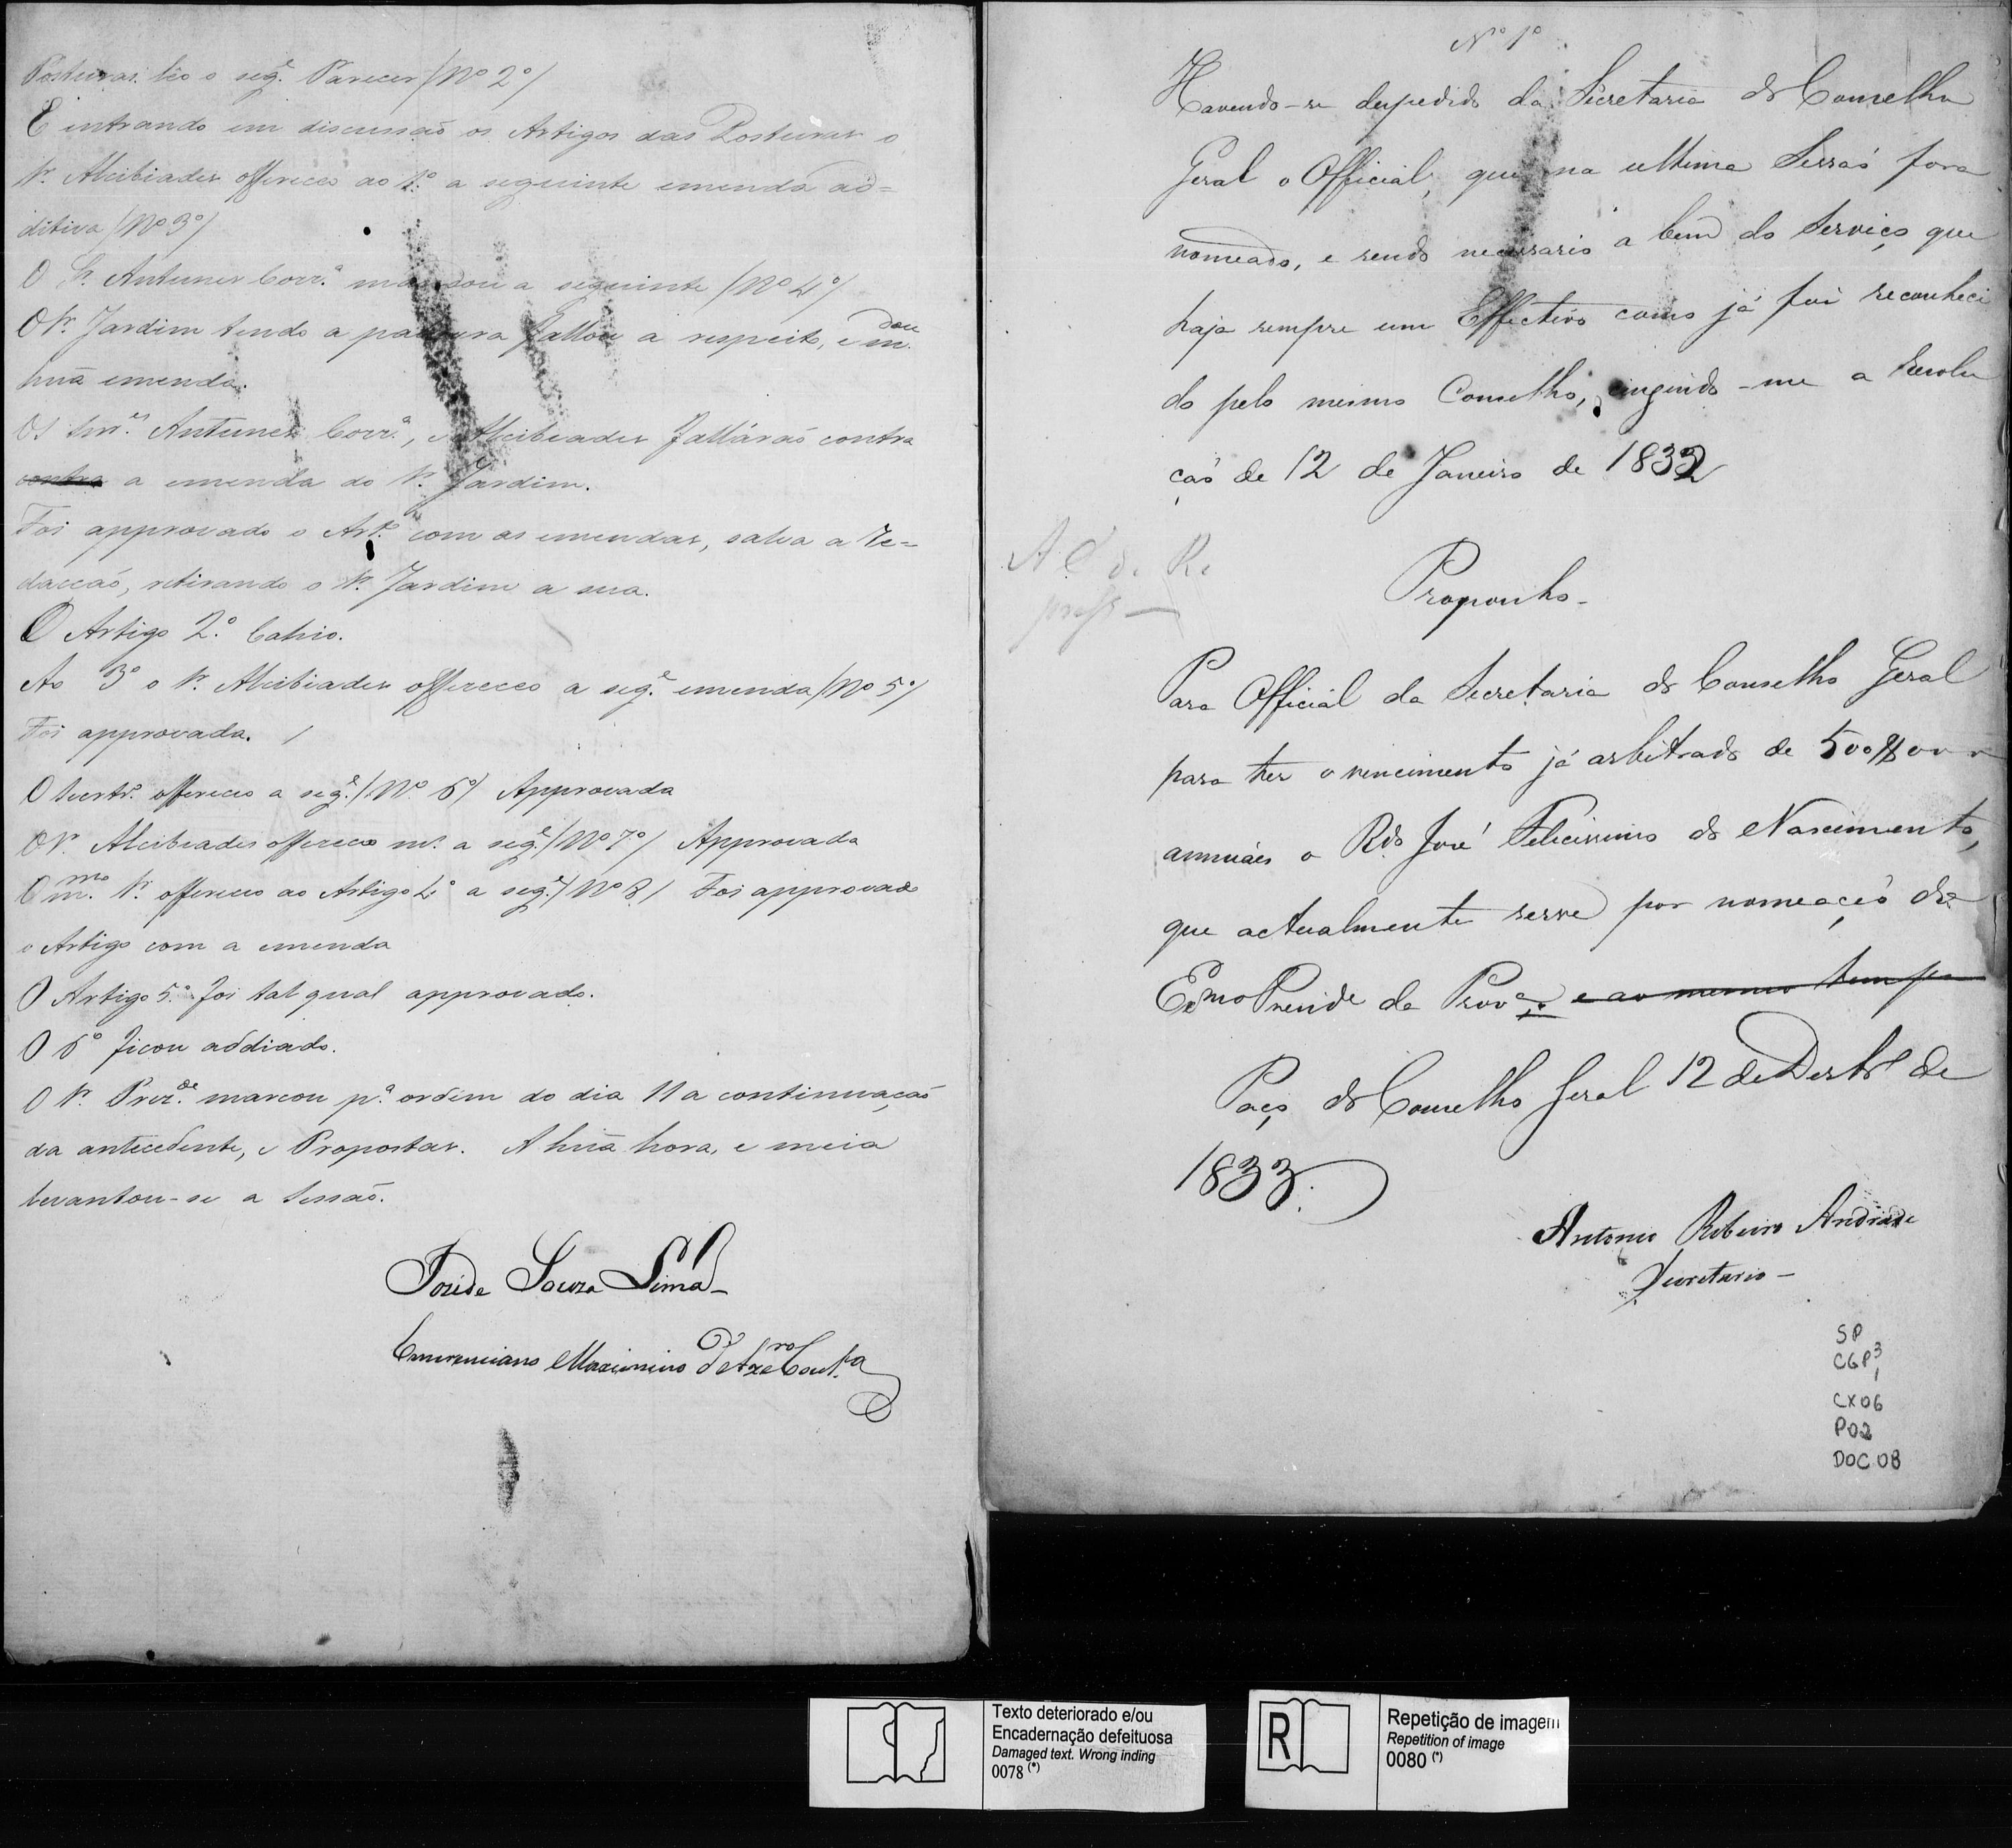 Posturas leo o seg.e Parecer /Nº 2º/
E intrando em discussaõ os Artigos das Posturas o
Sr. Alcibiades offereceo ao 1.º a seguinte emenda ad=
ditiva /Nº 3º/
O Sr. Antunes Corr.a mandou a seguinte /Nº 4º/
O Sr. Jardim tendo a palavra fallou a respeito, e m.dou
huã emenda.
Os Snr.es Antunes Corr.a, e Alcibiades falláraõ contra
contra a emenda do Sr. Jardim.
Foi approvado o Art.º com as emendas, salva a re=
dacçaõ, retirando o Sr. Jardim a sua.
O Artigo 2.º Cahio.
Ao 3º o Sr. Alcibiades offereceo a seg.e emenda /Nº 5º/
Foi approvada. /
O Secretr.º offereceo a seg.e /Nº 6º/ Approvada
O Sr. Alcibiades offereceo m.s a seg.e /Nº 7º/ Approvada
O m.mo Sr. offereceo ao Artigo 4º a seg.e /Nº 8/ Foi approvado
o Artigo com a emenda
O Artigo 5.º foi tal qual approvado.
O 6º ficou addiado.
O Sr. Prez.de marcou p.a ordem do dia 11 a continuaçaõ
da antecedente, e Propostas. A huã hora, e meia
levantou-se a Sessaõ.
José de Souza Lima
Emerenciano Maximino d'Azeredo Cout.º
Nº 1º
Havendo-se despedido da Secretaria do Conselho
Geral o Official, que na ultima Sessaõ fora
nomeado, e sendo necessario a bem do Serviço que
haja sempre um Effectivo como já foi reconheci
do pelo mesmo Conselho, cingindo-me a Resolu
çaõ de 12 de Janeiro de 1832
Proponho-
Para Official da Secretaria do Conselho Geral
para ter o vencimento já arbitrado de 500$000
annuáes o Rdo José Felicissimo do Nascimento,
que actualmente serve por nomeaçaõ do
Exmo Prezide da Prov.a e ao mesmo tempo
Paço do Conselho Geral 12 de Dezbro de
1833.
Antonio Ribeiro Andrade
Secretario-
SP
CGP3
1
CX06
P02
DOC 08
Texto deteriorado e/ou
Encadernação defeituosa
Damaged text. Wrong inding
0078 (*)
R
Repetição de imagem
Repetition of image
0080 (*)